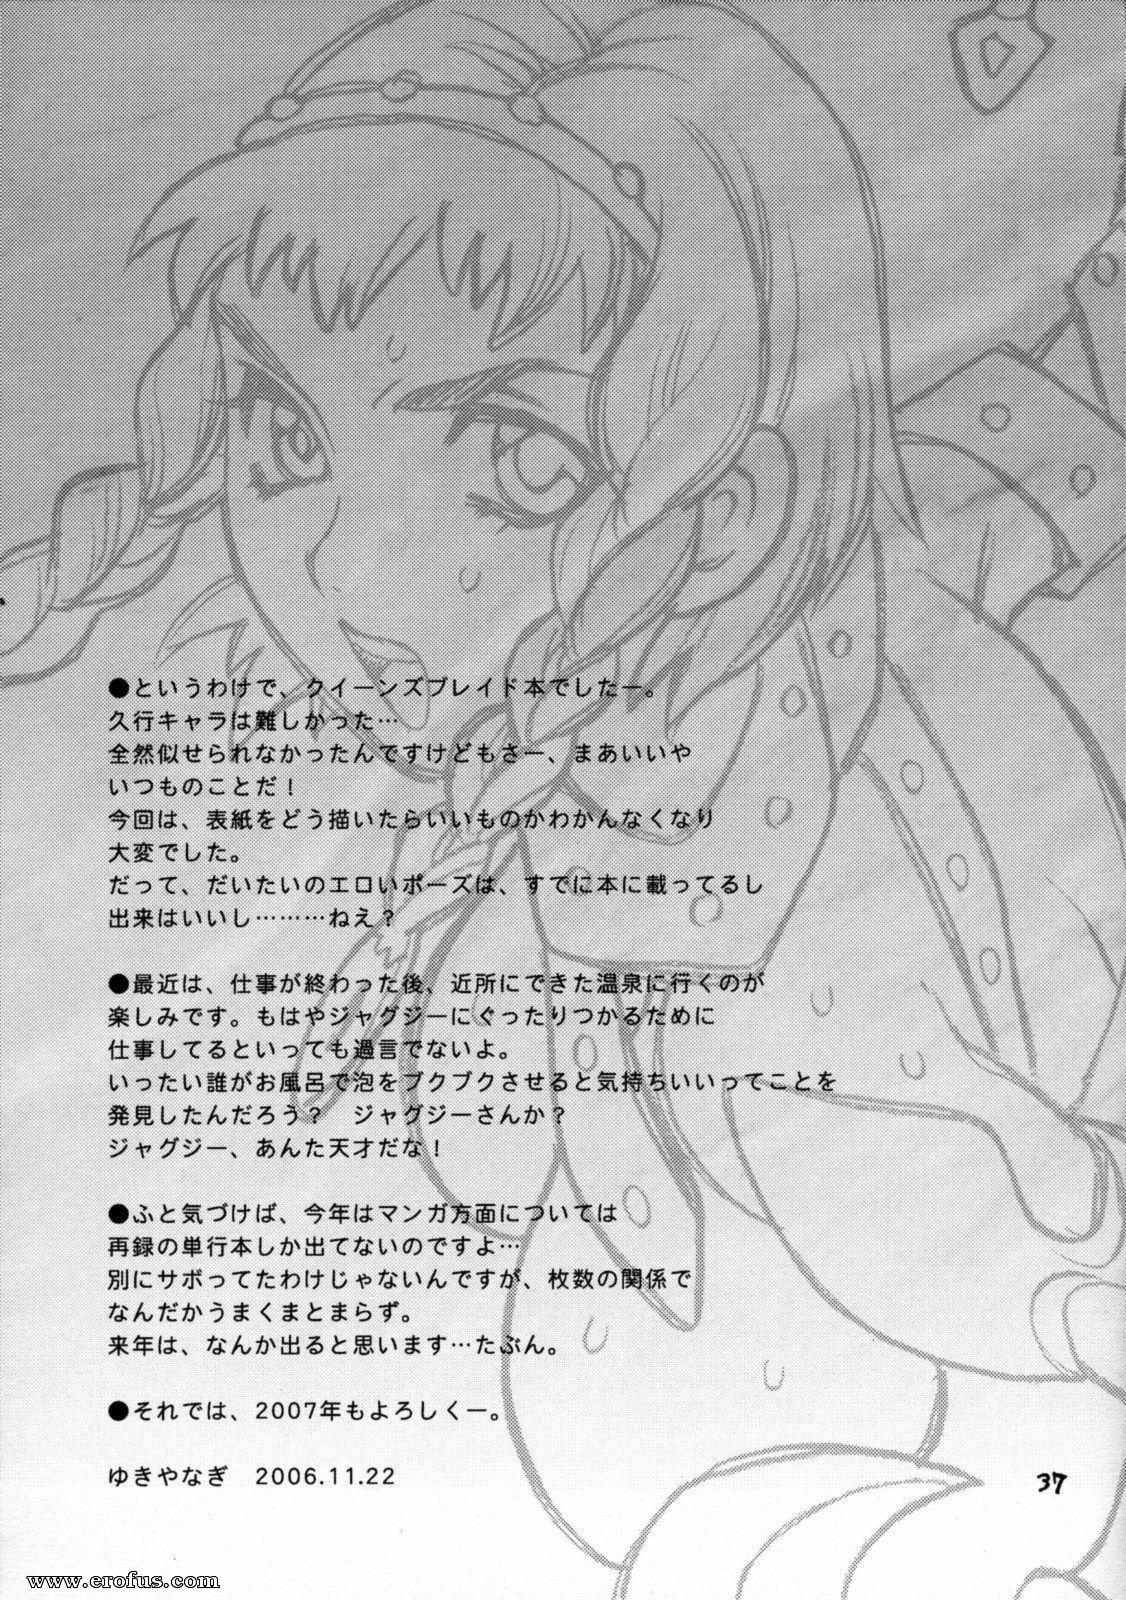 ●というわけで、クイーンズブレイド本でしたー。
久行キャラは難しかった…
全然似せられなかったんですけどもさー、まあいいや
いつものことだ！
今回は、表紙をどう描いたらいいものかわかんなくなり
大変でした。
だって、だいたいのエロいポーズは、すでに本に載ってるし
出来はいいし………ねえ？
●最近は、仕事が終わった後、近所にできた温泉に行くのが
楽しみです。もはやジャグジーにぐったりつかるために
仕事してるといっても過言でないよ。
いったい誰がお風呂で泡をブクブクさせると気持ちいいってことを
発見したんだろう？　ジャグジーさんか？
ジャグジー、あんた天才だな！
●ふと気づけば、今年はマンガ方面については
再録の単行本しか出てないのですよ…
別にサボってたわけじゃないんですが、枚数の関係で
なんだかうまくまとまらず。
来年は、なんか出ると思います…たぶん。
●それでは、2007年もよろしくー。
ゆきやなぎ　2006.11.22
37
www.erofus.com